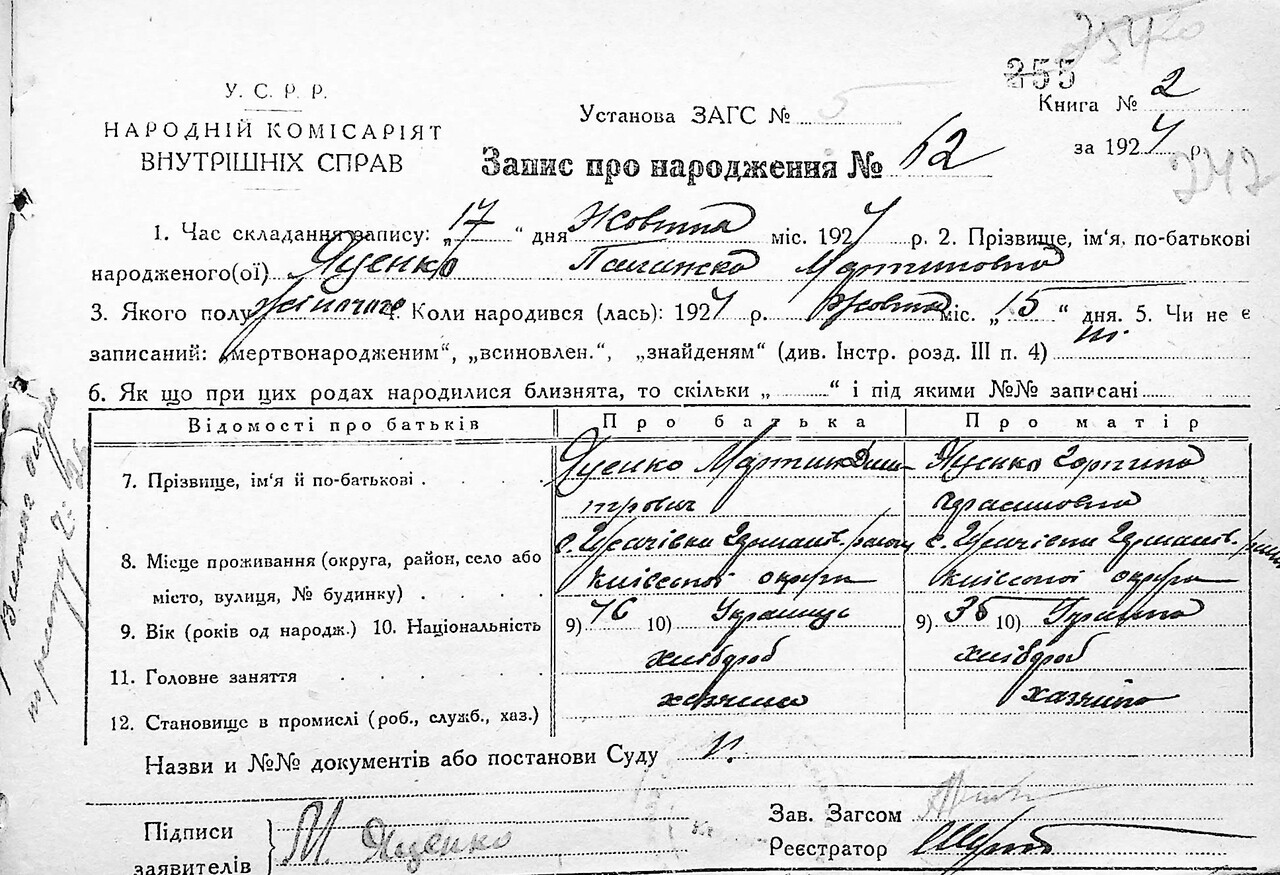 255
У. С. Р. Р.
НАРОДНІЙ КОМІСАРІЯТ
ВНУТРІШНІХ СПРАВ
Установа ЗАГС № 5
Книга № 2
за 1924 р.
242
Запис про народження № 62
1. Час складання запису: „17“ дня Жовтня міс. 1924 р. 2. Прізвище, ім'я, по-батькові
народженого(ої) Яценко Мартиновна
3. Якого полу жіночого 4. Коли народився (лась): 1924 р. Жовтня міс. „15“ дня. 5. Чи не є
записаний: „мертвонародженим“, „всиновлен.“, „знайденям“ (див. Інстр. розд. III п. 4) ні
6. Як що при цих родах народилися близнята, то скільки „ “ і під якими №№ записані
Відомості про батьків Про батька Про матір
7. Прізвище, ім'я й по-батькові Яценко Мартин Дми-
трович
Яценко Горпина
Герасимовна
8. Місце проживання (округа, район, село або
місто, вулиця, № будинку)
с. району
київської округи
с.
київської округи
9. Вік (років од народж.) 10. Національність 9) 46 10) Українець 9) 35 10)
11. Головне заняття хлібороб хлібороб
12. Становище в промислі (роб., служб., хаз.) хазяїн
Назви и №№ документів або постанови Суду
Підписи
заявителів
М. Яценко
Зав. Загсом
Реєстратор